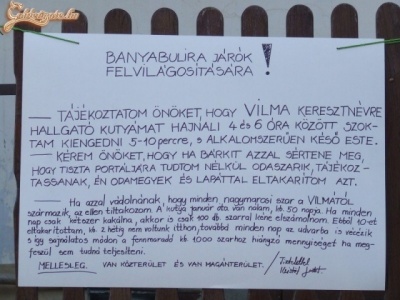 BANYABULIRA JÁRÓK
FELVILÁGOSÍTÁSÁRA !
— TÁJÉKOZTATOM ÖNÖKET, HOGY VILMA KERESZTNÉVRE
HALLGATÓ KUTYÁMAT HAJNALI 4 és 6 ÓRA KÖZÖTT SZOK-
TAM KIENGEDNI 5-10 percre, s ALKALOMSZERŰEN KÉSŐ ESTE.
— KÉREM ÖNÖKET, HOGY HA BÁRKIT AZZAL SÉRTENE MEG,
HOGY TISZTA PORTÁLJÁRA TUDTOM NÉLKÜL ODASZARIK, TÁJÉKOZ-
TASSANAK, ÉN ODAMEGYEK ÉS LAPÁTTAL ELTAKARÍTOM AZT.
— Ha azzal vádolnának, hogy minden nagymarosi szar a VILMÁTÓL
származik, az ellen tiltakozom. A kutya január óta van nálam, kb. 50 napja. Ha minden
nap csak kétszer kakilna, akkor is csak 100 db. szarral kéne elszámolnom. Ebből 10-et
eltakarítottam, kb. 2 hétig nem voltunk itthon, továbbá minden nap az udvarba is vécézik
s így sajnálatos módon a fennmaradó kb. 1000 szarhoz hiányzó mennyiséget ha meg-
feszül sem tudná teljesíteni.
MELLESLEG. VAN KÖZTERÜLET ÉS VAN MAGÁNTERÜLET.
Tisztelettel